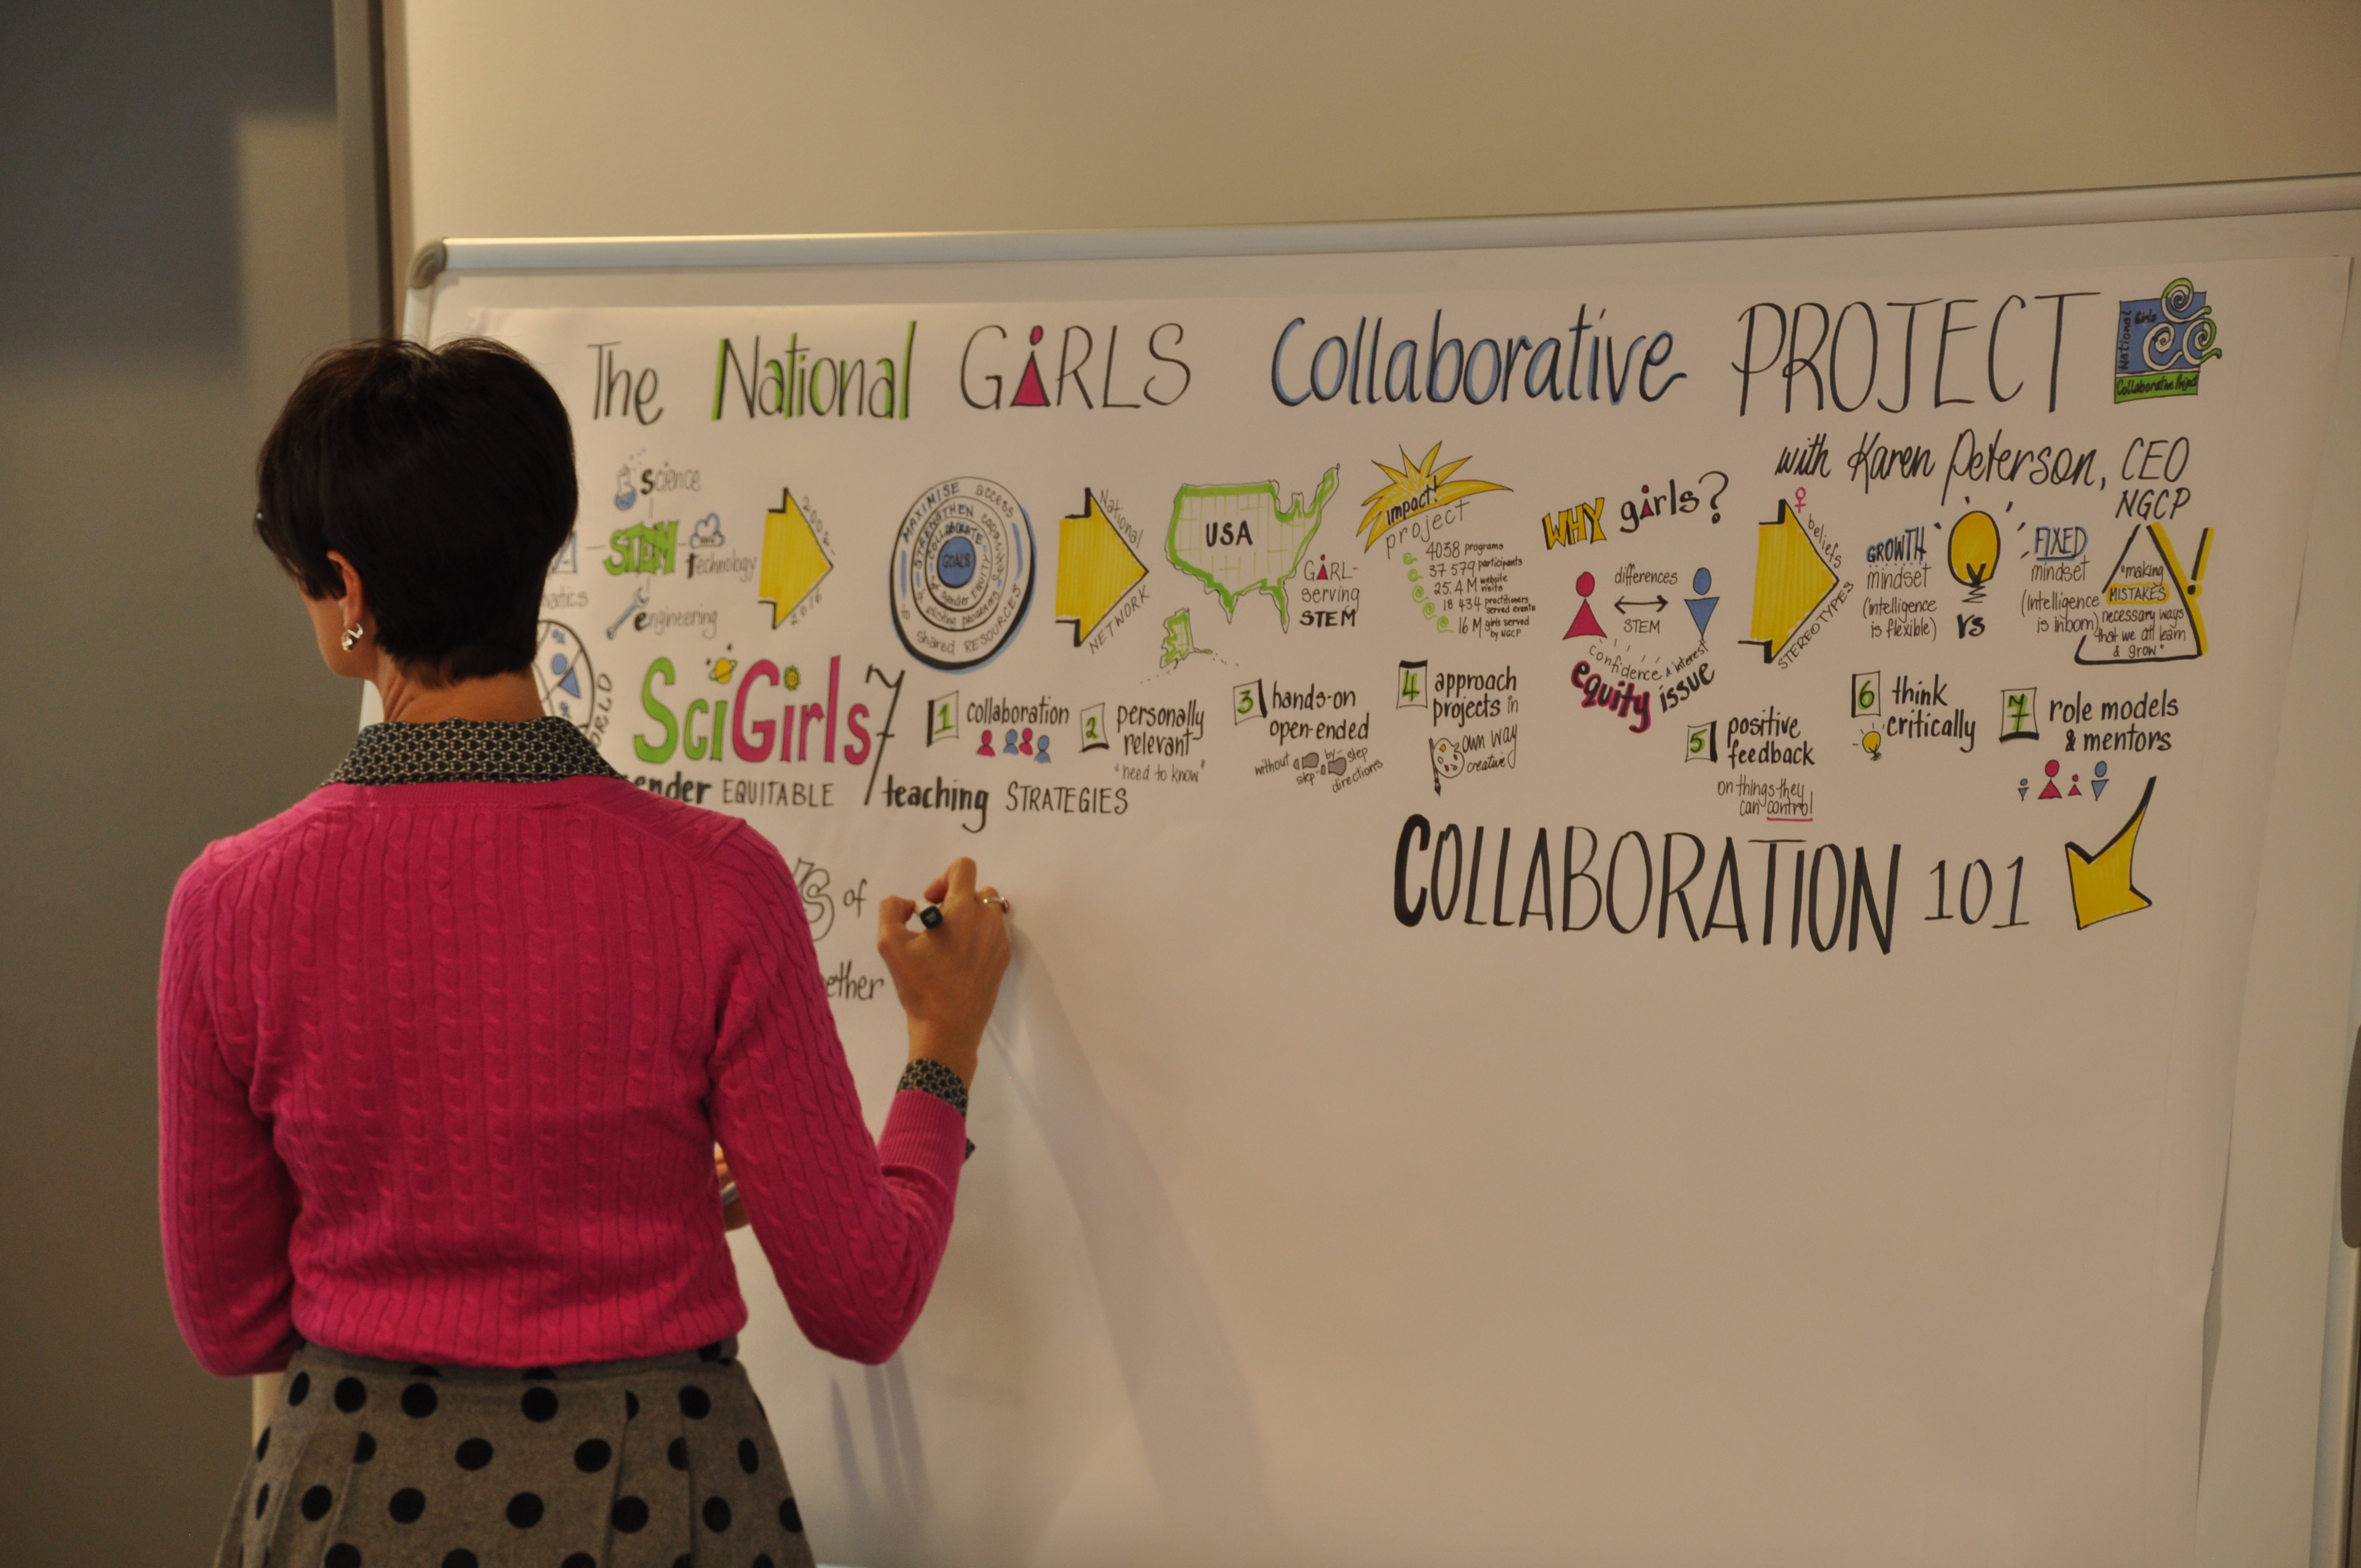 The National GiRLS Collaborative PROJECT
National Girls
Collaborative Project
with Karen Peterson, CEO
NGCP
science
STEM
technology
engineering
matics
2002-
2016
MAXIMISE access
shared RESOURCES
STRENGTHEN capacity
existing programs
COLLABORATE
gender EQUITY
GOALS
National
NETWORK
USA
GiRL-
serving
STEM
impact!
project
4038 programs
37 579 participants
25.4 M website visits
18 434 practitioners served events
16 M girls served by NGCP
WHY girls?
differences
STEM
confidence & interest
equity issue
beliefs
STEREOTYPES
GROWTH
mindset
(intelligence
is flexible)
vs
FIXED
mindset
(Intelligence
is inborn)
"making
MISTAKES
necessary ways
that we all learn
& grow"
WORLD
SciGirls 7
ender EQUITABLE teaching STRATEGIES
1 collaboration
2 personally
relevant
"need to know"
3 hands-on
open-ended
without step-by-step
directions
4 approach
projects in
own way
creative
5 positive
feedback
on things they
can control
6 think
critically
7 role models
& mentors
COLLABORATION 101
S of
ether